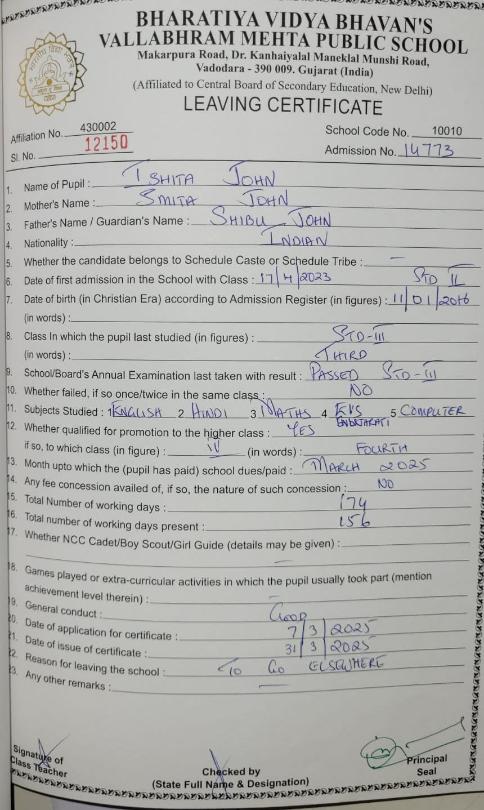 BHARATIYA VIDYA BHAVAN'S
VALLABHRAM MEHTA PUBLIC SCHOOL
Makarpura Road, Dr. Kanhaiyalal Maneklal Munshi Road,
Vadodara - 390 009. Gujarat (India)
(Affiliated to Central Board of Secondary Education, New Delhi)
LEAVING CERTIFICATE
Affiliation No. 430002 School Code No. 10010
Sl. No. 12150 Admission No. 14773
1. Name of Pupil : ISHITA JOHN
2. Mother's Name : SMITA JOHN
3. Father's Name / Guardian's Name : SHIBU JOHN
4. Nationality : INDIAN
5. Whether the candidate belongs to Schedule Caste or Schedule Tribe : –
6. Date of first admission in the School with Class : 17/4/2023 STD II
7. Date of birth (in Christian Era) according to Admission Register (in figures) : 11/01/2016
(in words) :
8. Class In which the pupil last studied (in figures) : STD-III
(in words) : THIRD
9. School/Board's Annual Examination last taken with result : PASSED STD-III
10. Whether failed, if so once/twice in the same class : NO
11. Subjects Studied : 1 ENGLISH 2 HINDI 3 MATHS 4 EVS 5 COMPUTER
12. Whether qualified for promotion to the higher class : YES
if so, to which class (in figure) : IV (in words) : FOURTH
13. Month upto which the (pupil has paid) school dues/paid : MARCH 2025
14. Any fee concession availed of, if so, the nature of such concession : NO
15. Total Number of working days : 174
16. Total number of working days present : 156
17. Whether NCC Cadet/Boy Scout/Girl Guide (details may be given) :
–
18. Games played or extra-curricular activities in which the pupil usually took part (mention
achievement level therein) : –
19. General conduct : GOOD
20. Date of application for certificate : 7/3/2025
21. Date of issue of certificate : 31/3/2025
22. Reason for leaving the school : TO GO ELSEWHERE
23. Any other remarks : –
Signature of
Class Teacher
Checked by
(State Full Name & Designation)
Principal
Seal